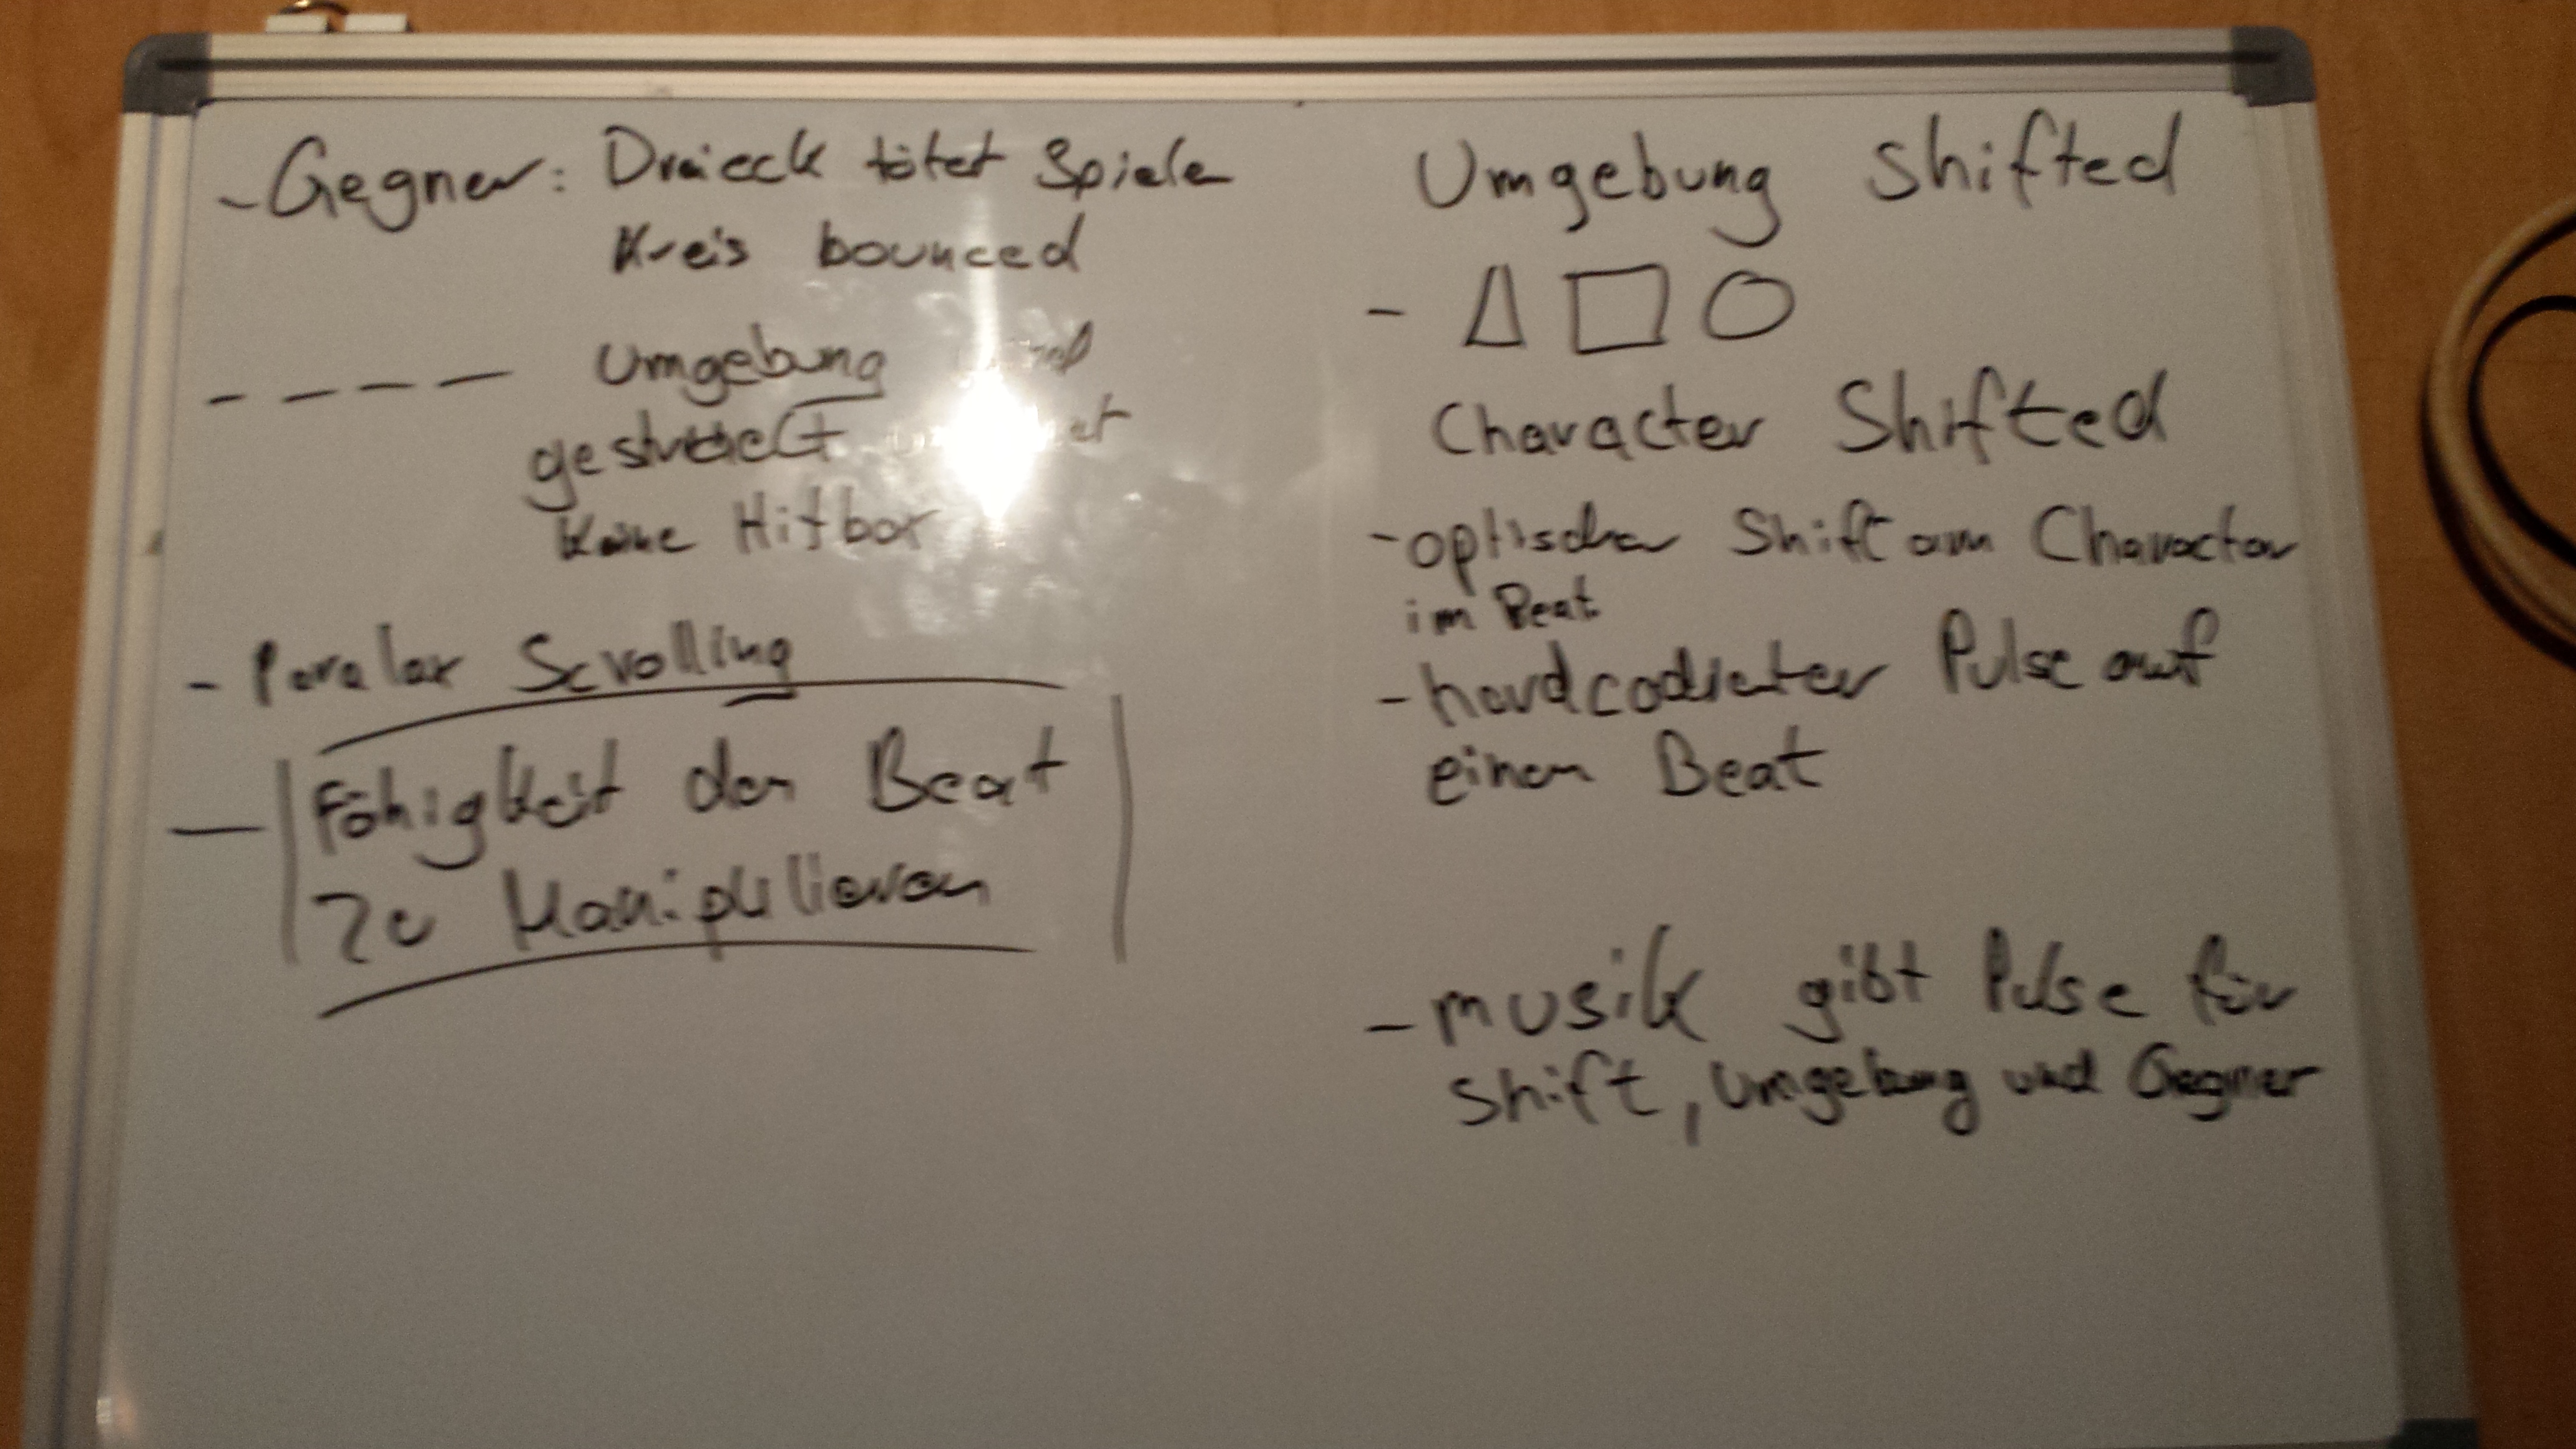 - Gegner: Dreieck tötet Spieler
Kreis bounced
Umgebung
gestrichelt
keine Hitbox
- Paralax Scrolling
- Fähigkeit den Beat
zu Manipulieren
Umgebung Shifted
-
Character Shifted
- optischer Shift am Character
im Beat
- hardcodierter Pulse auf
einen Beat
- musik gibt Pulse für
shift, Umgebung und Gegner